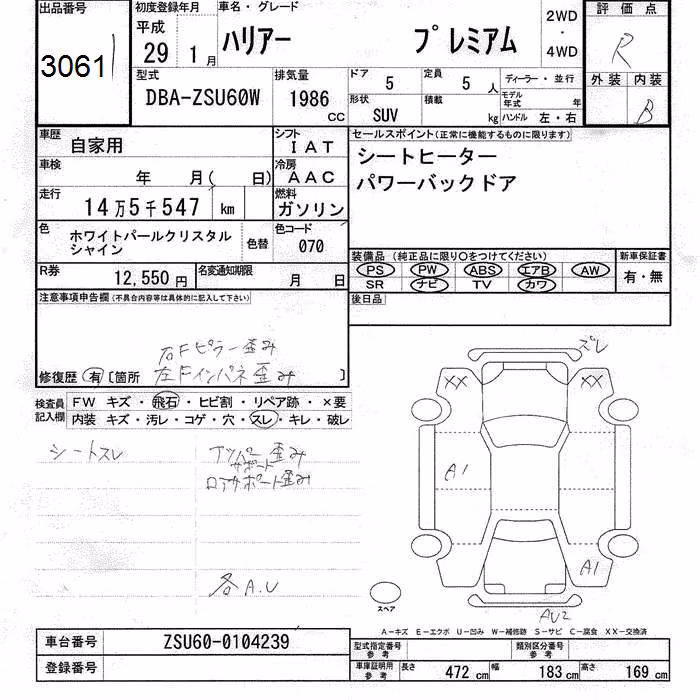 出品番号 初度登録年月 車名・グレード 2WD ・ 4WD 評価点
30611 平成 29年 1月 ハリアー プレミアム R
型式 排気量 ドア 5 定員 5人 ディーラー・並行 外装 内装
DBA-ZSU60W 1986 CC 形状 SUV 積載 kg モデル年式 年 ハンドル 左・右 B
車歴 自家用 シフト IAT セールスポイント(正常に機能するものに限ります)
車検 年 月( 日) 冷房 AAC シートヒーター
走行 14万5千547 km 燃料 ガソリン パワーバックドア
色 ホワイトパールクリスタルシャイン 色替 色コード 070
装備品(純正品に限り○をつけてください) 新車保証書
PS PW ABS エアB AW 有・無
SR ナビ TV カワ
R券 12,550円 名変通知期限 月 日
後日品
注意事項申告欄(不具合内容等は具体的に記入して下さい)
右Fピラー歪み
修復歴 有 [箇所 左Fインパネ歪み ]
検査員記入欄 FW キズ・飛石・ヒビ割・リペア跡・×要
内装 キズ・汚レ・コゲ・穴・スレ・キレ・破レ
シートスレ アッパーサポート歪み
ロアサポート歪み
各A.U
ズレ
XX XX
A1
A1
AU2
スペア
A-キズ E-エクボ U-凹み W-補修跡 S-サビ C-腐食 XX-交換済
車台番号 ZSU60-0104239
登録番号
型式指定番号 参考 類別区分番号 参考
車庫証明用 参考 長さ 472 cm 幅 183 cm 高さ 169 cm